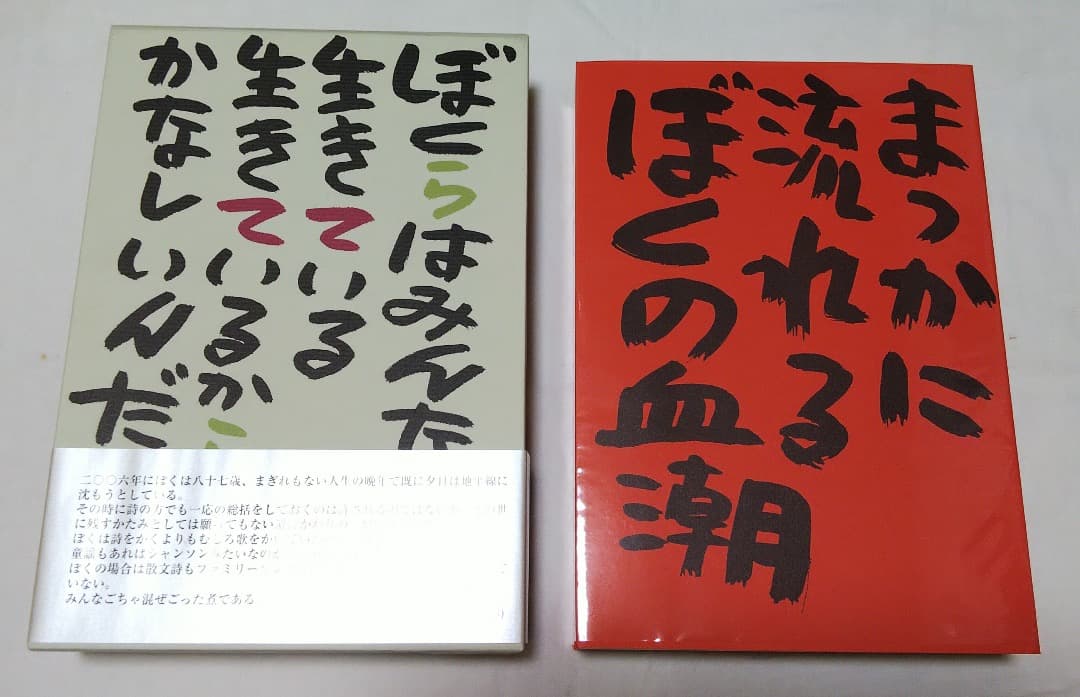 ぼくらはみんな
生きている
生きているから
かなしいんだ
二〇〇六年にぼくは八十七歳、まぎれもない人生の晩年で既に夕日は地平線に
沈もうとしている。
その時に詩の方でも一応の総括をしておくのは
に残すかたみとしては願ってもない
ぼくは詩をかくよりもむしろ歌をか
童謡もあればシャンソンみたいなの
ぼくの場合は散文詩もファミリー
いない。
みんなごちゃ混ぜごった煮である
まっかに
流れる
ぼくの血潮